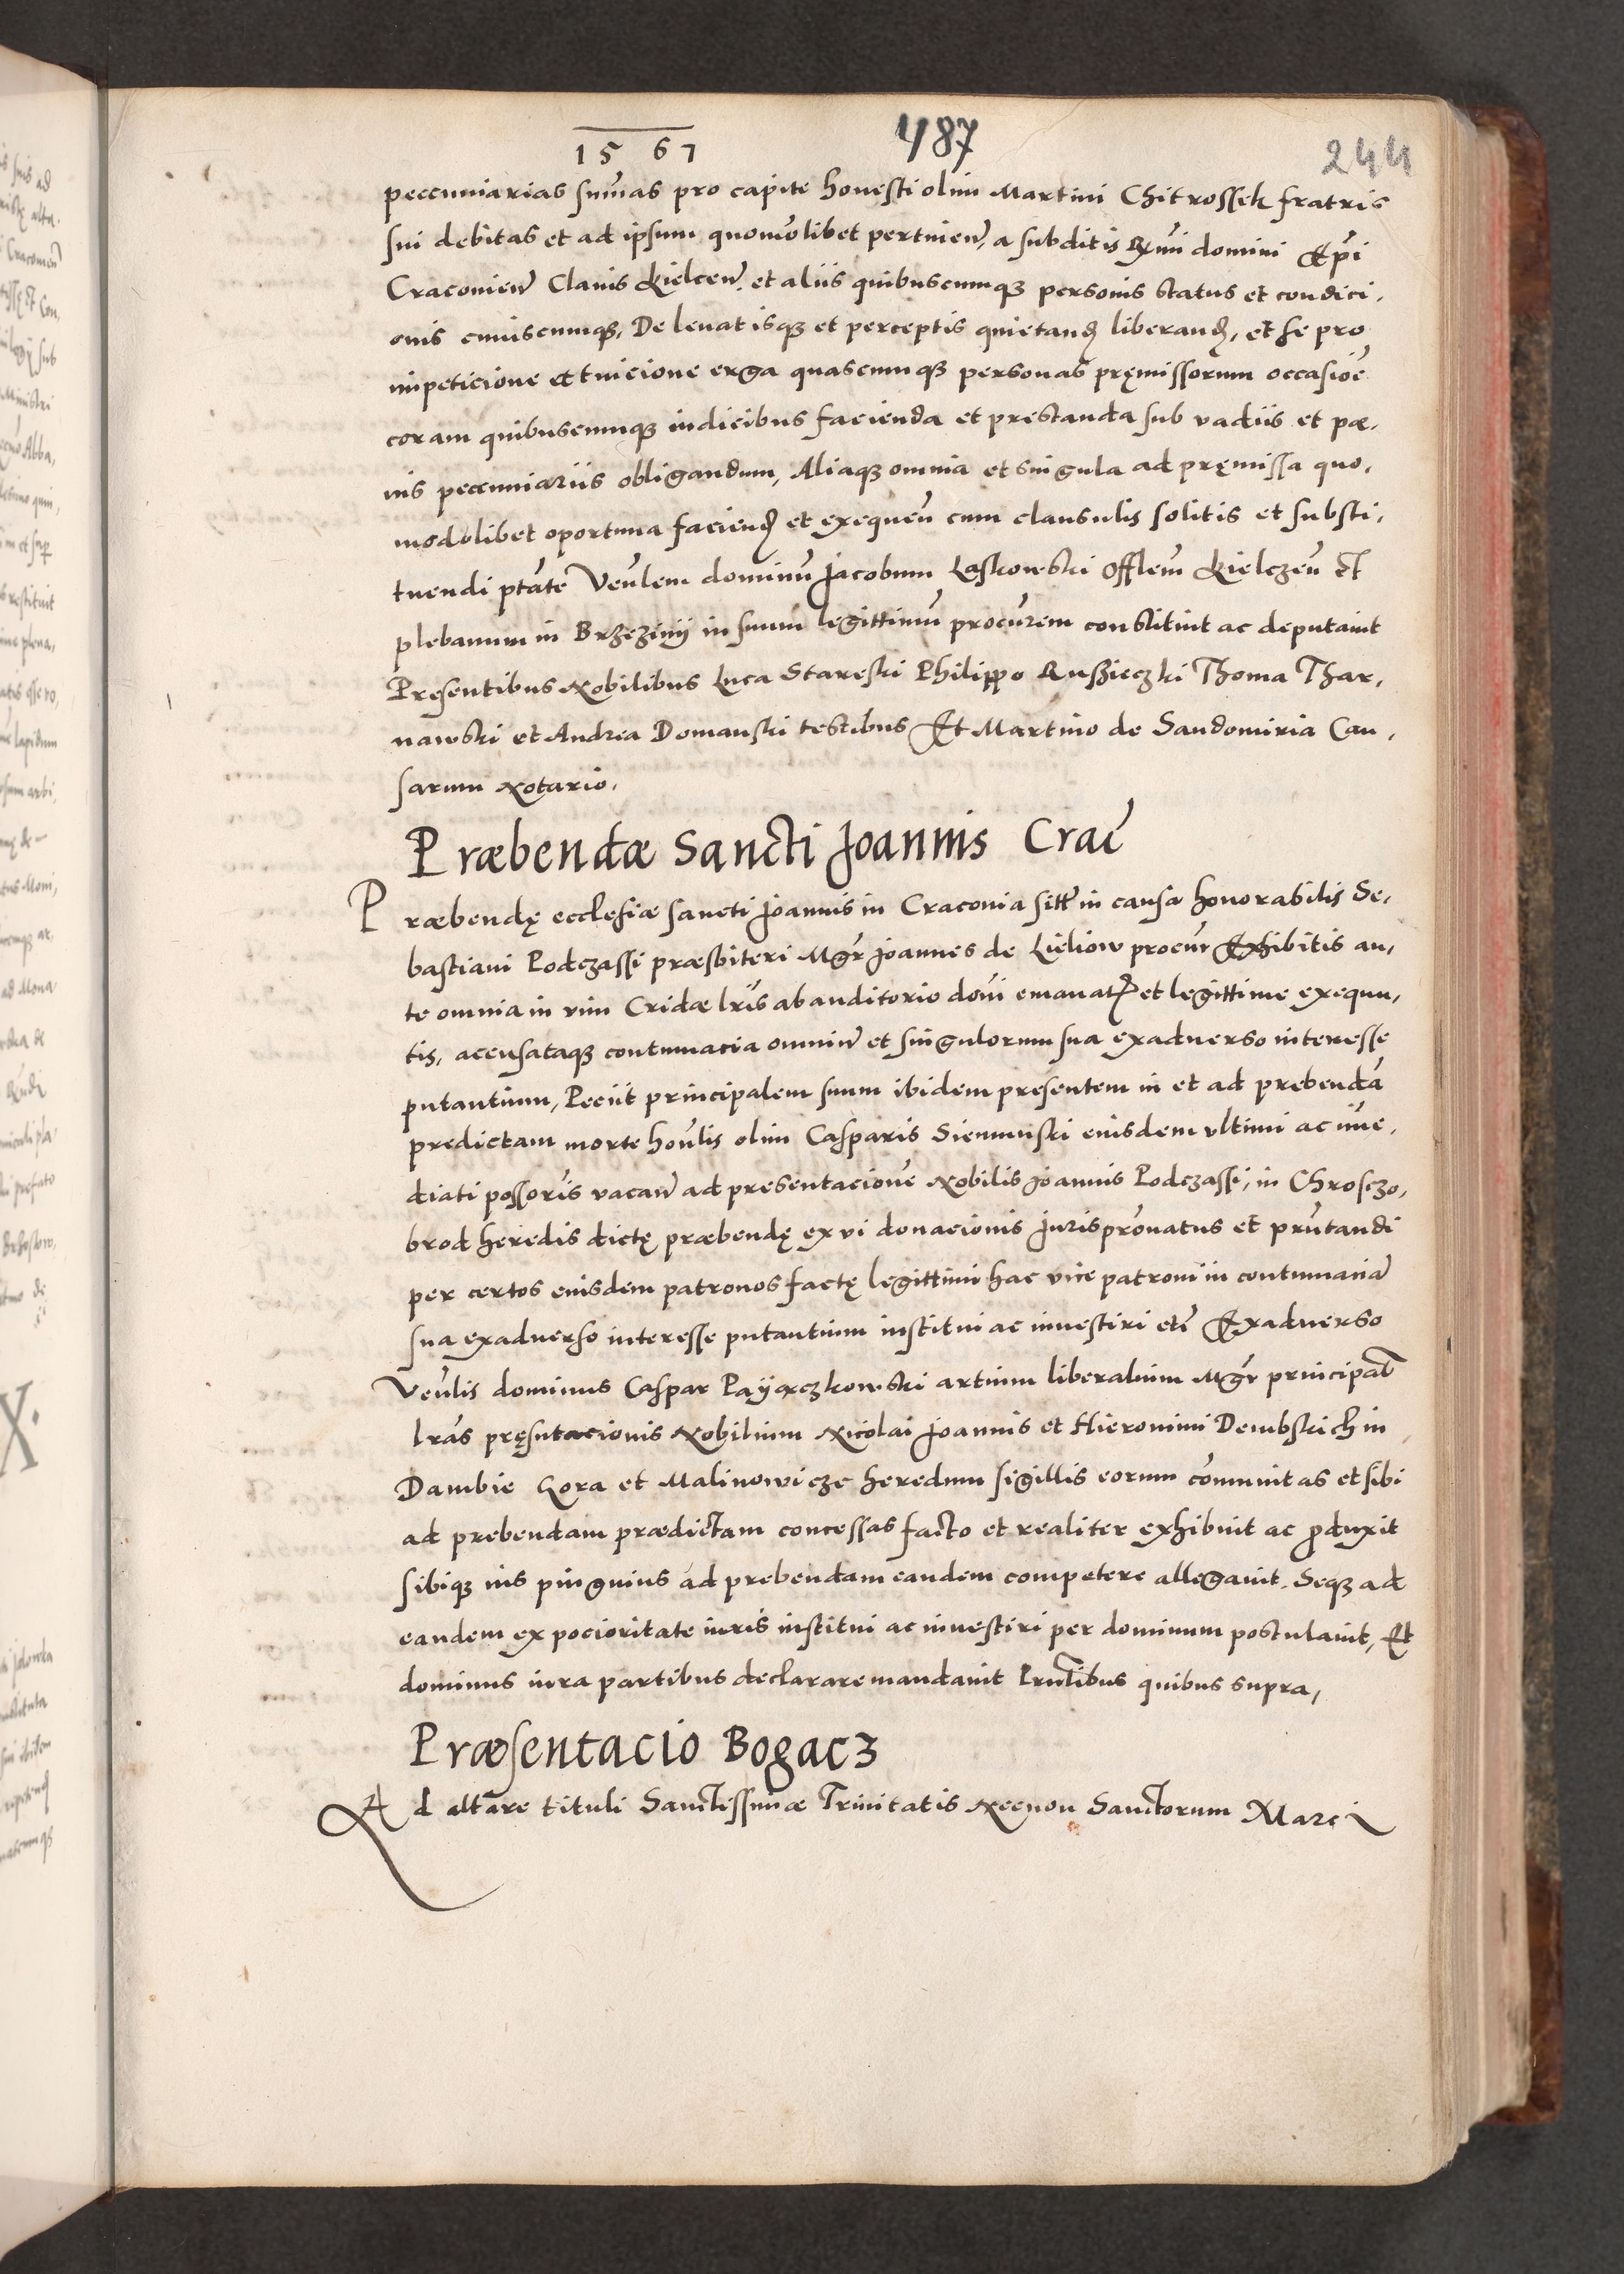 1567 487 244
peccuniarias sum̄as pro capite honesti olim Martini Chitrossek fratris
sui debitas et ad ipsum quomōlibet pertinen̄, a subditis Rx̄mi domini Ep̄i
Cracovien̄ Clavis Kielcen̄. et aliis quibuscumqꝫ personis status et condici,
onis cuiuscumqꝫ, De levatisqꝫ et perceptis quietand̄ liberand̄, et se pro
impeticione et tuicione erga quascumqꝫ personas pręmissorum occasiōe
coram quibuscumqꝫ iudicibus facienda et prestanda sub vadiis et pæ,
nis peccuniariis obligandum, Aliaqꝫ omnia et singula ad pręmissa quo,
modolibet oportuna faciend̄ et exequen̄ cum clausulis solitis et substi,
tuendi ptāte Ven̄lem dominū Jacobum Laskowski Offlem̄ Kielczen̄ Et
plebanum in Brzezinij in suum legittimū procūrem constituit ac deputavit
Presentibus Nobilibus Luca Stareski Philippo Russieczki Thoma Thar,
nawski et Andrea Domanski testibus Et Martino de Sandomiria Cau,
sarum Notario.
Præbendæ Sancti Joannis Crac̄
Præbendę ecclesiæ sancti Joannis in Craconia sitt̄ in causa honorabilis Se,
bastiani Podczassi præsbiteri Mgr̄ Joannes de Lieliow procūr Exhibitis an,
te omnia in vim Cridæ lrīs ab auditorio domī emanat̄ et legittime exequu,
tis, accusataqꝫ contumacia omniū et singulorum sua exadverso interesse
putantium, Peciit principalem suum ibidem presentem in et ad prebendā
predictam morte honl̄is olim Casparis Siemuski eiusdem ultimi ac im̄e,
diati possor̄is vacan̄ ad presentacionē Nobilis Joannis Podczassi, in Chrosczo,
brod heredis dictę præbendę ex vi donacionis Jurispron̄atus et prn̄tandi
per certos eiusdem patronos factę legittimi hac vice patroni in contumaciā
sua exadverso interesse putantium institui ac investiri etc̄ Exadverso
Ven̄lis dominus Caspar Payączkowski artium liberalium Mgr̄ principal̄
lrās pręsntacionis Nobilium Nicolai Joannis et Hieronimi Dembskich in
Dambie Gora et Malinowicze heredum sigillis eorum cōmunitas et sibi
ad prebendam prædictam concessas facto et realiter exhibuit ac produxit
sibiqꝫ ius pinguius ad prebendam eandem competere allegavit. Seqꝫ ad
eandem ex pocioritate iuris institui ac investiri per dominum postulavit, Et
dominus iura partibus declarare mandavit Prn̄tibus quibus supra,
Præsentacio Bogacz
Ad altāre tituli Sanctissimæ Trinitatis Necnon Sanctorum Marci